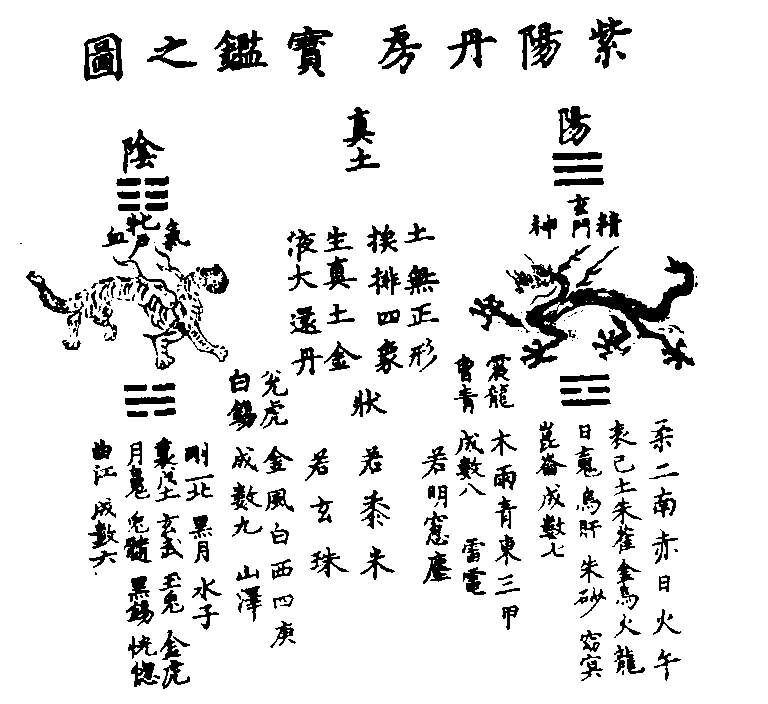 紫陽丹房寶鑑之圖
陽
精
玄門
神
震龍
曾青
柔二南赤日火午
表己土朱雀金烏火龍
日魂烏肝 朱砂 窈冥
崑崙 成數七
木雨青東三甲
成數八 雷電
真土
土無正形
挨排四象
生真土金
液大還丹
狀
若明窓塵
若黍米
若玄珠
陰
氣
牝戶
血
兌虎
白錫
金風白西四庚
成數九 山澤
剛一北 黑月 水子
裏戊土 玄武 玉兔 金虎
月魄 兔髓 黑錫 恍惚
曲江 成數六